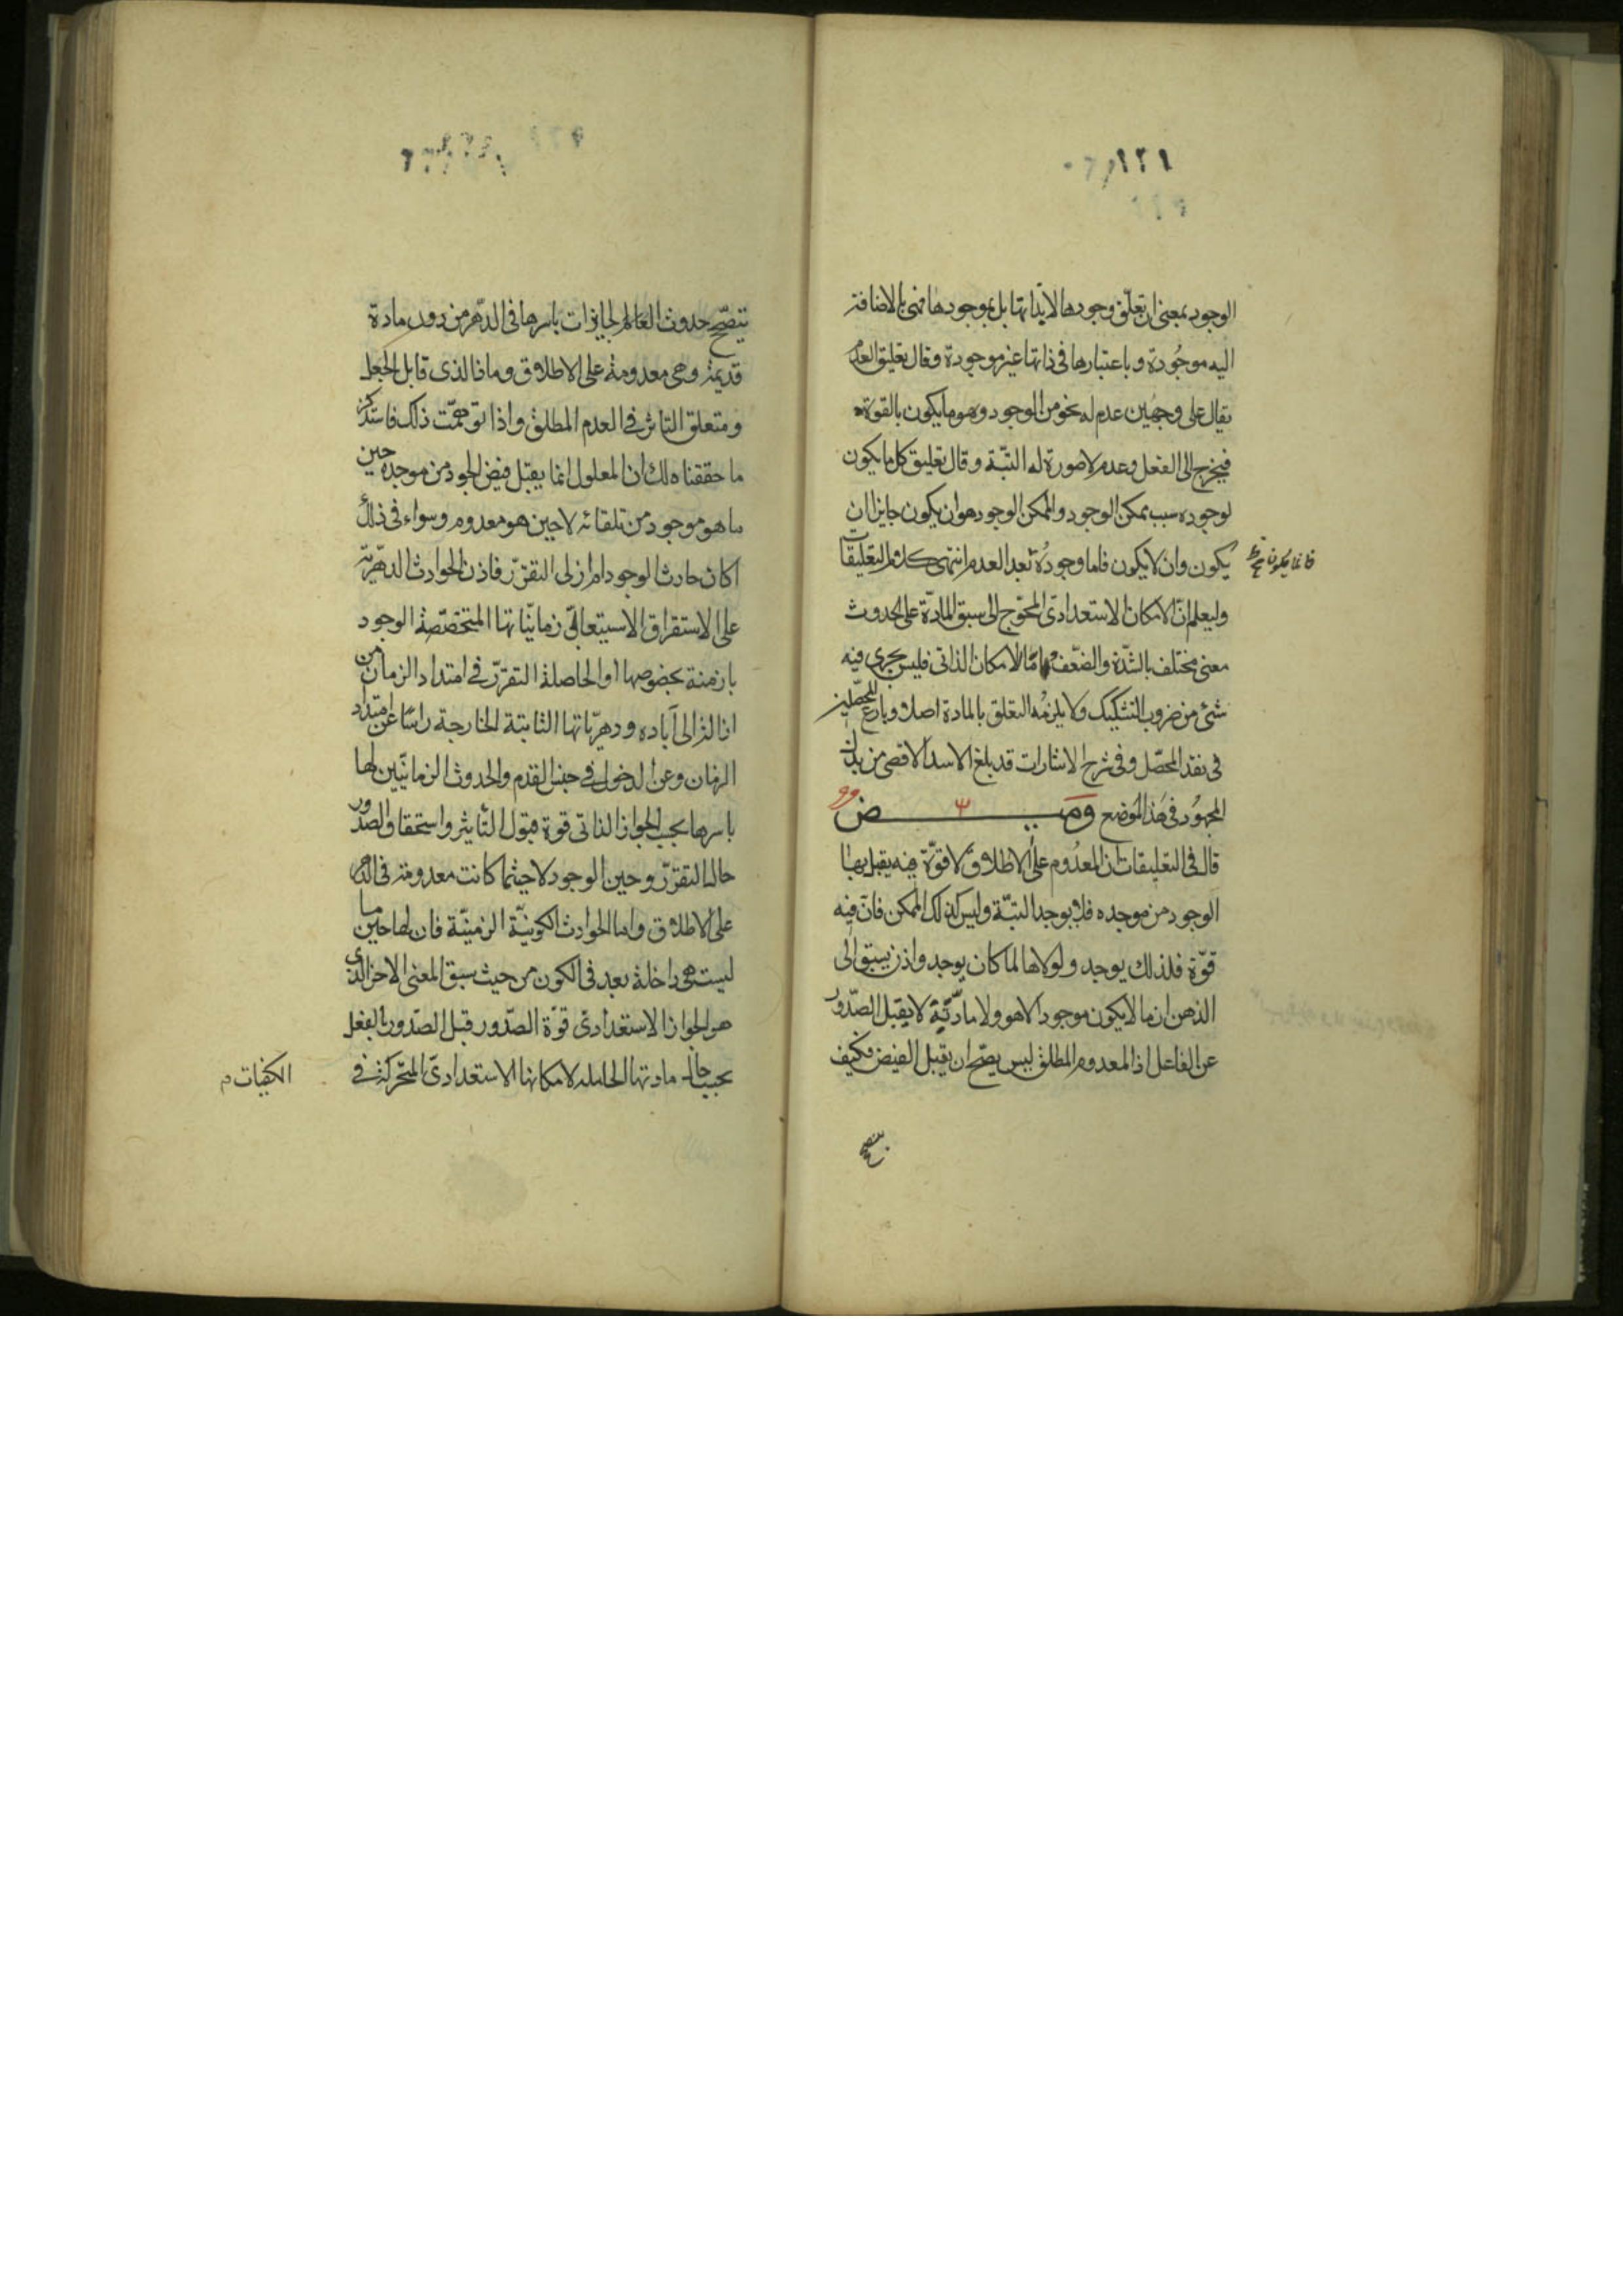 ١٢١
الوجود بمعنى ان تعلّق وجودها لا بذاتها بل بموجودها فهى بالاضافة
اليه موجُودة وباعتبارها فى ذاتها غير موجودة وقال تعليق العدم
يقال على وجهين عدم له نحو من الوجود وهو ما يكون بالقوة
فيخرج الى الفعل وعدم لا صورة له البتّة وقال تعليق كل ما يكون
لوجوده سبب ممكن الوجود والممكن الوجود هو ان يكون جايزا ان
يكون وان لا يكون فاما وجودُه بعد العدم انتهى كلام التعليقات
فانما يكون
وليعلم انّ الامكان الاستعدادىّ المحوّج الى سبق المادّة على الحدوث
معنى مختلف بالشّدّة والضّعف واما الامكان الذاتى فليس يجرى فيه
شىء من ضروب التشكيك ولا يلزمُه التعلق بالمادة اصلا وبارع المحصّلين
فى نقد المحصّل وفى شرح الاشارات قد بلغ الامد الاقصى من بذل
المجهُود فى هَذا المَوضع ومَيـــض
قال فى التعليقات ان المعدُوم على الاطلاق لا قوّة فيه يقبل بها
الوجود من موجده فلا يوجد البتّة وليس كذلك الممكن فانّ فيه
قوّة فلذلك يوجد ولولاها لما كان يوجد واذن يسبق الى
الذهن ان ما لا يكون موجودا لا هو ولا مادّتُه لا يقبل الصّدور
عن الفاعل اذ المعدوم المطلق ليس يصحّ ان يقبل الفيض فكيف
يتصحّح حدوث العَالم الجايزات باسرها فى الدّهر من دون مادة
قديمة وهى معدومة على الاطلاق وما ذا الذى قابل الجعل
ومتعلق التاثر فى العدم المطلق واذا توهمّت ذلك فاستذكر
ما حققناه لك ان المعلول انما يقبل فيض الجود من موجده حين
ما هو موجود من تلقائه لا حين هو معدوم وسواء فى ذلك
اكان حادث الوجود ام ازلى التقرّر فاذن الحوادث الدهريّة
على الاستقراق الاستيعابىّ زمانيّاتها المتخصّصة الوجود
بازمنة بخصوصها او الحاصلة التقرّر فى امتداد الزمان من
ازاله الى آباده ودهريّاتها الثابتة الخارجة راسًا عن امتداد
الزمان وعن الدخول فى جنس القدم والحدوث الزمانيّين لها
باسرها بحسب الجواز الذاتى قوة قبول التأثير واستحقاق الصّدور
حال التقرّر وحين الوجود لا حيثما كانت معدومة فى الدهر
على الاطلاق واما الحوادث الكونيّة الزمنيّة فان لها حين ما
ليست هى داخلة بعد فى الكون من حيث سبق المعنى الاخر الذى
هو الجواز الاستعدادىّ قوّة الصّدور قبل الصّدور بالفعل
بحسب حال مادتها الحاملة لامكانها الاستعدادىّ المتحّركة فى
الكيفيات م